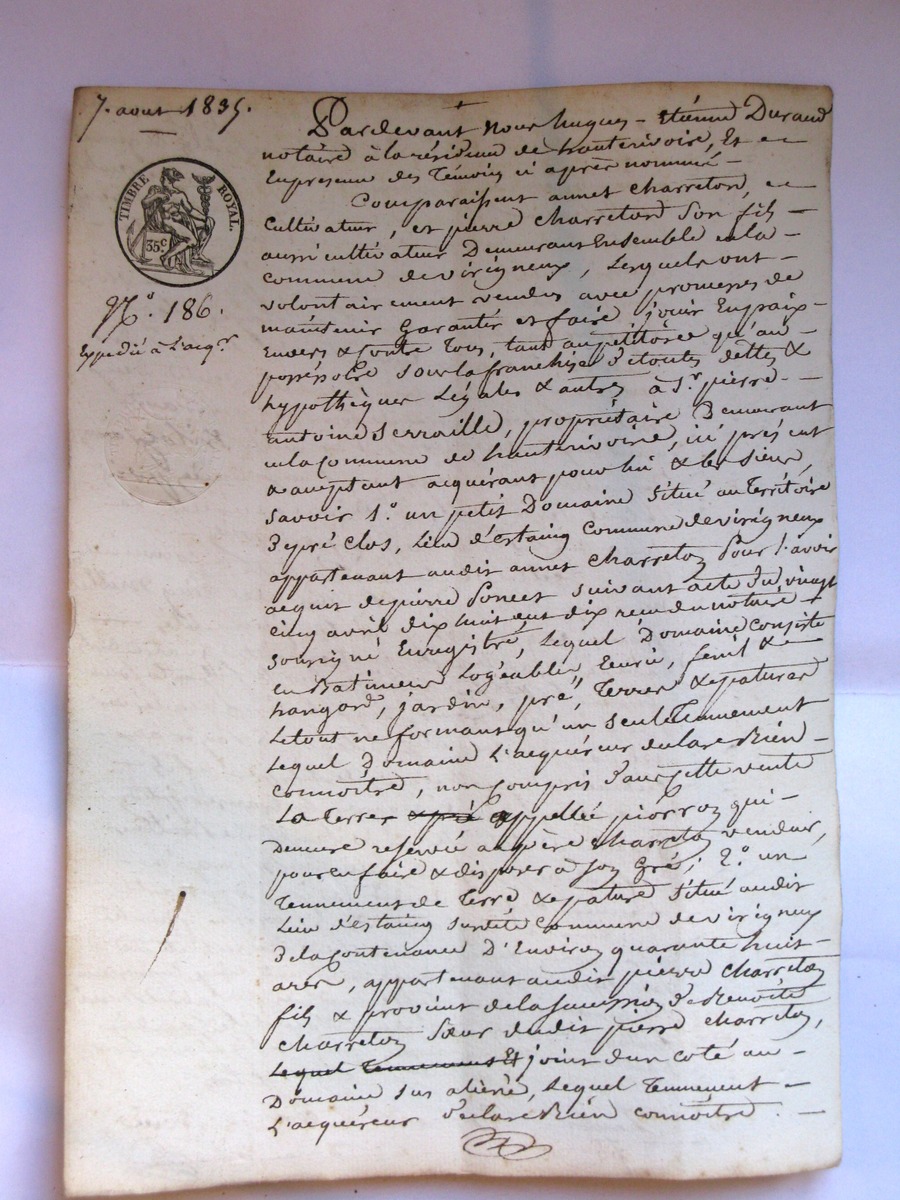 7. aout 1835.
TIMBRE ROYAL.
35c
N°. 186.
Expédié à L'acqr
Pardevant Nous hugues-étienne Durand
notaire à la résidence de hauterivoire, Et en
Enpresence des Témoins ci après nommé
Comparaissent annet Charreton,
Cultivateur, et pierre Charreton Son fils
aussi cultivateur Demeurant Ensemble en la
commune de virigneux, Lesquels ont
volontairement vendus avec promesses de
maintenir Garantir et faire jouir Enpaix
Envers & Contre Tous, tant au petitoire qu'au
possessoire sous la franchise de toutes dettes &
hypothèques Légales & autres à Sr. pierre
antoine Serraille, propriétaire Demeurant
en la Commune de hauterivoire, ici présent
& acceptant acquérant pour lui & les siens
Savoir 1°. un petit Domaine situé au Territoire
de pré Clos, Lieu d'estaing Commune de virigneux
appartenant audit annet Charreton Pour l'avoir
acquit de pierre Poncet suivant acte du vingt
Cinq avril dix huit cent dix recu du notaire
soussigné Enregistré, Lequel Domaine consiste
en Batimens Logéables, Ecurie, fenil &
hangard, jardin, pré, Terres & patures
Le tout ne formant qu'un seul Tennement
Lequel Domaine L'acquéreur declare Bien
connoitre, non compris dans cette vente
La Terre & pré appellée piorron qui
Demeure réservée au père Charreton vendeur,
pour en faire & disposer à son Gré; 2°. un
Tennement de Terre & pature Situé audit
Lieu d'estaing susdite Commune de virigneux
de la Contenance D'Environ quarante huit
ares, appartenant audit pierre Charreton
fils & provient de la succession de Benoite
Charreton Sœur dudit pierre Charreton,
Lequel Tennement Et joint d'un coté au
Domaine sus aliéné, Lequel Tennement
L'acquéreur déclare Bien connoitre.